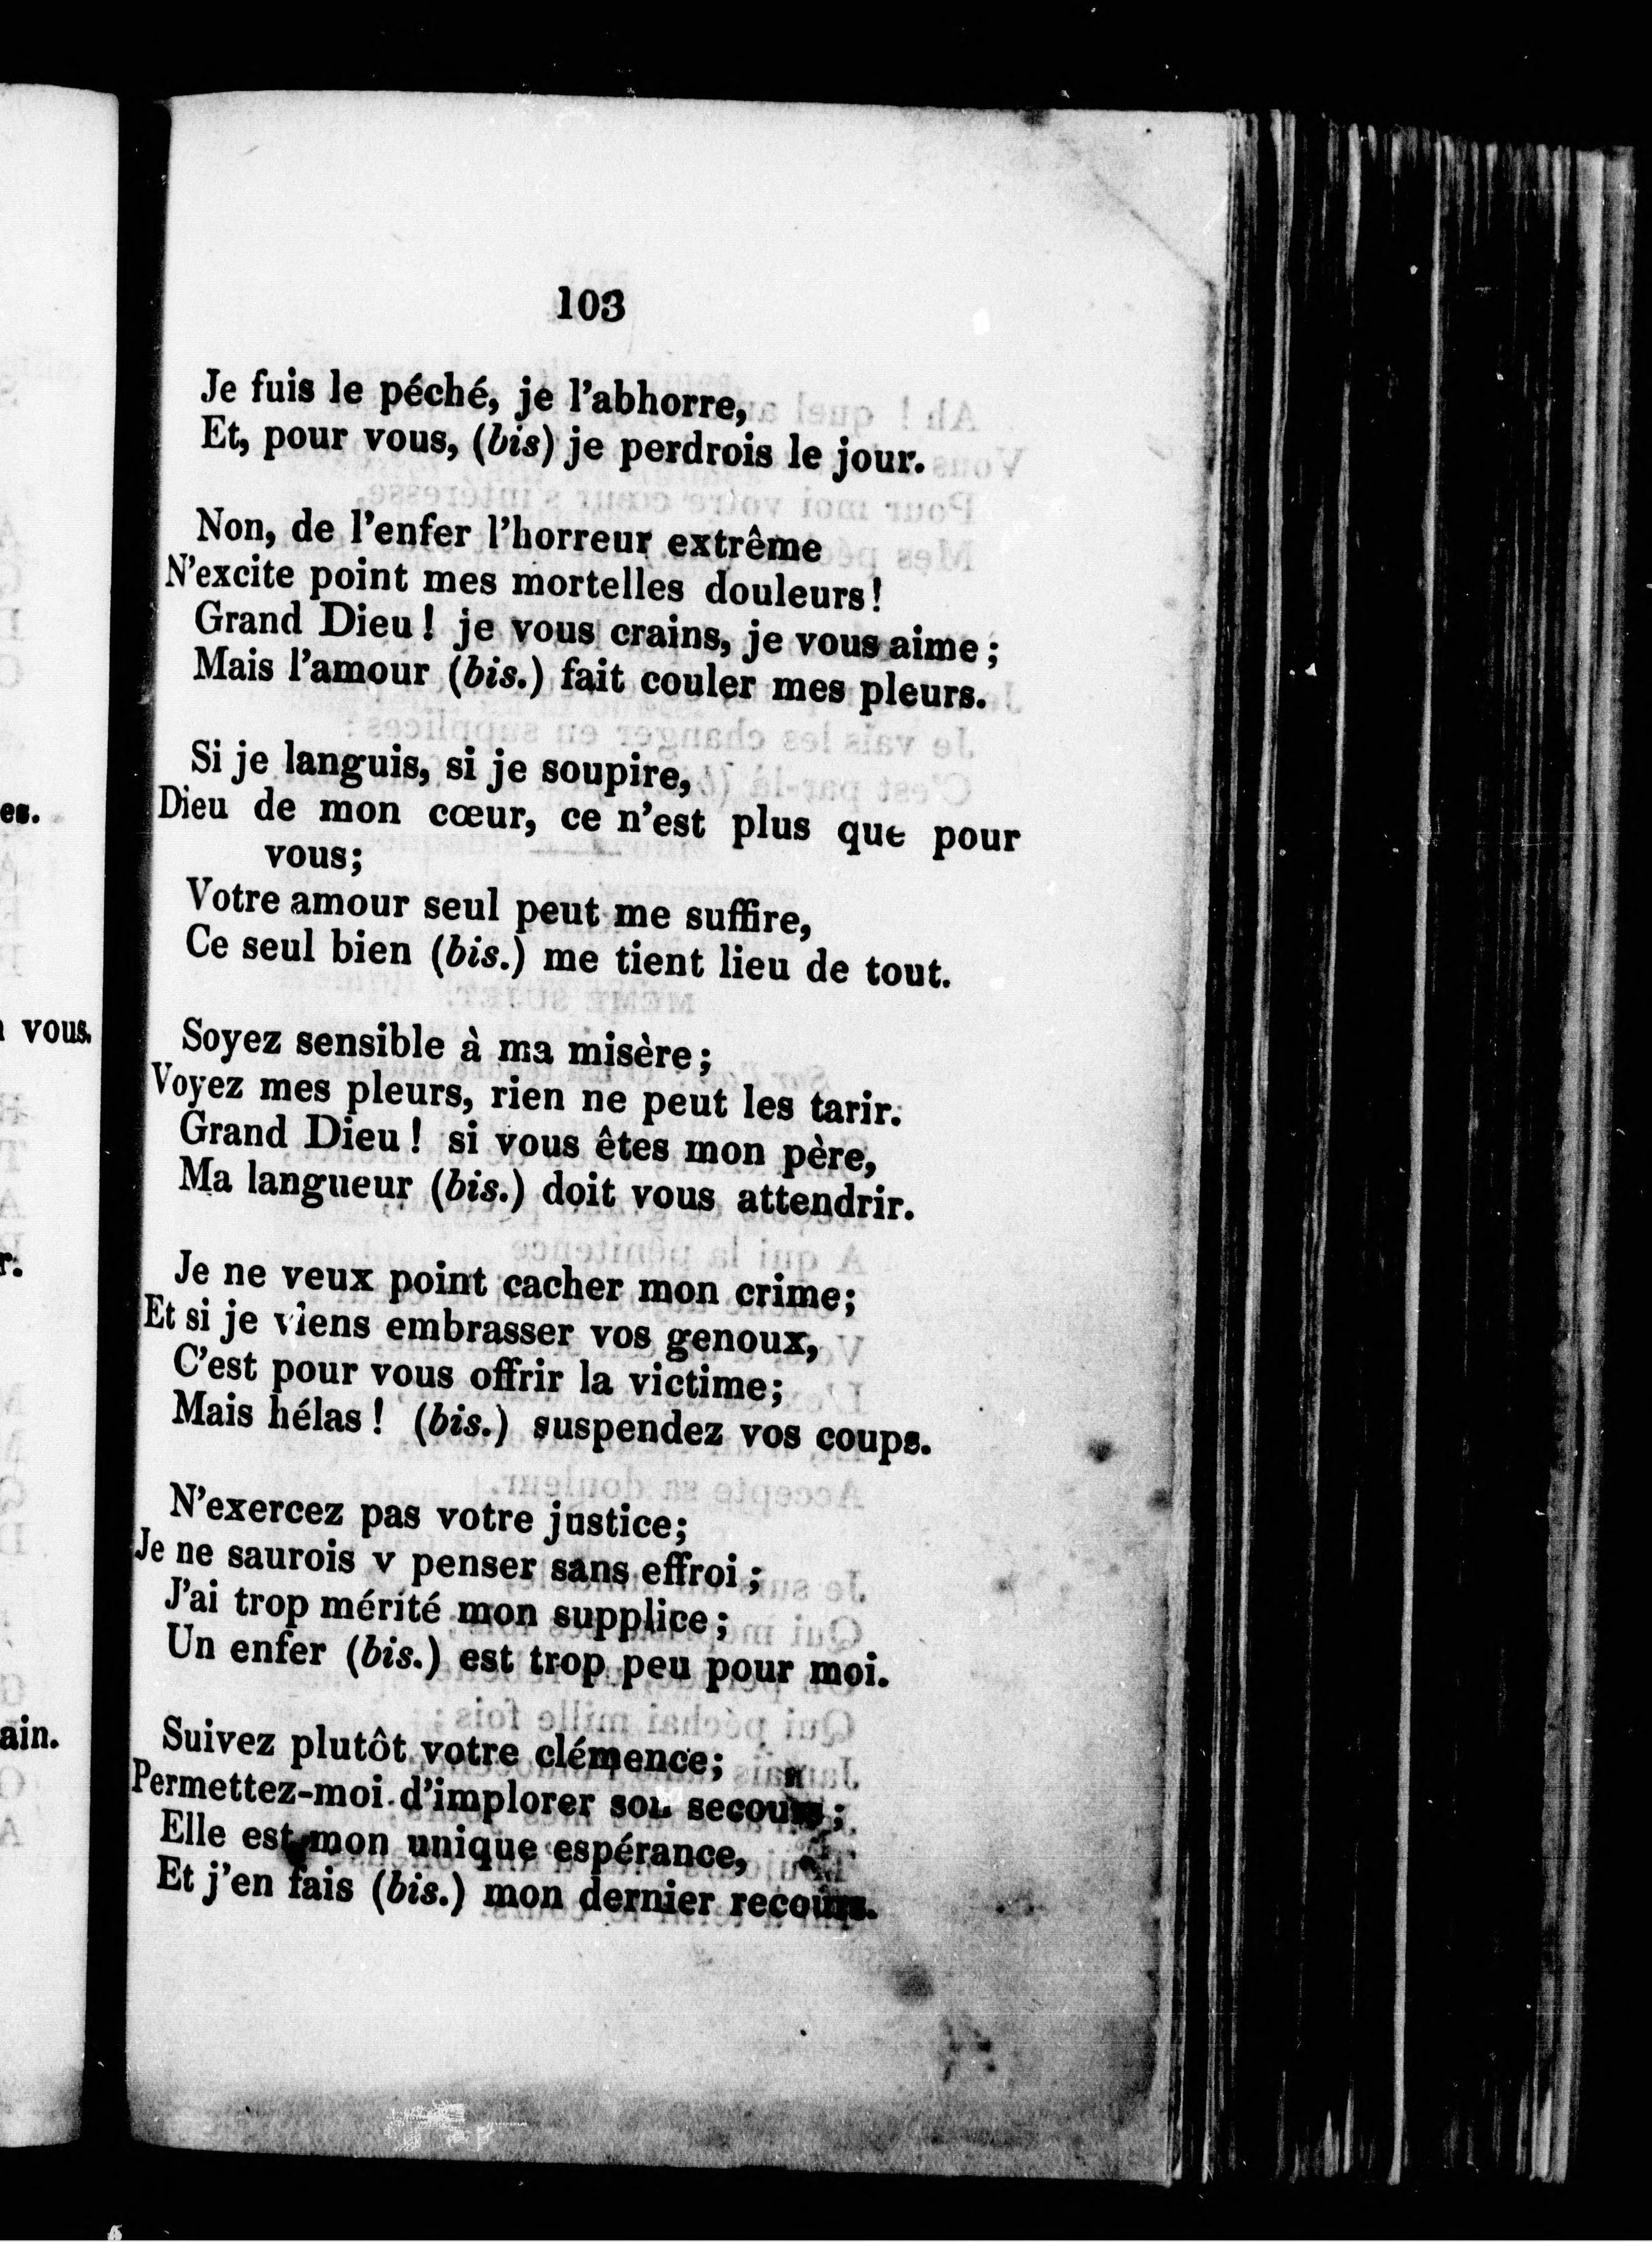 es.
vous.
r.
ain.
103
Je fuis le péché, je l'abhorre,
Et, pour vous, (bis) je perdrois le jour.
Non, de l'enfer l'horreur extrême
N'excite point mes mortelles douleurs!
Grand Dieu! je vous crains, je vous aime;
Mais l'amour (bis.) fait couler mes pleurs.
Si je languis, si je soupire,
Dieu de mon cœur, ce n'est plus que pour
vous;
Votre amour seul peut me suffire,
Ce seul bien (bis.) me tient lieu de tout.
Soyez sensible à ma misère;
Voyez mes pleurs, rien ne peut les tarir.
Grand Dieu! si vous êtes mon père,
Ma langueur (bis.) doit vous attendrir.
Je ne veux point cacher mon crime;
Et si je viens embrasser vos genoux,
C'est pour vous offrir la victime;
Mais hélas! (bis.) suspendez vos coups.
N'exercez pas votre justice;
Je ne saurois y penser sans effroi;
J'ai trop mérité mon supplice;
Un enfer (bis.) est trop peu pour moi.
Suivez plutôt votre clémence;
Permettez-moi d'implorer son secours;
Elle est mon unique espérance,
Et j'en fais (bis.) mon dernier recours.